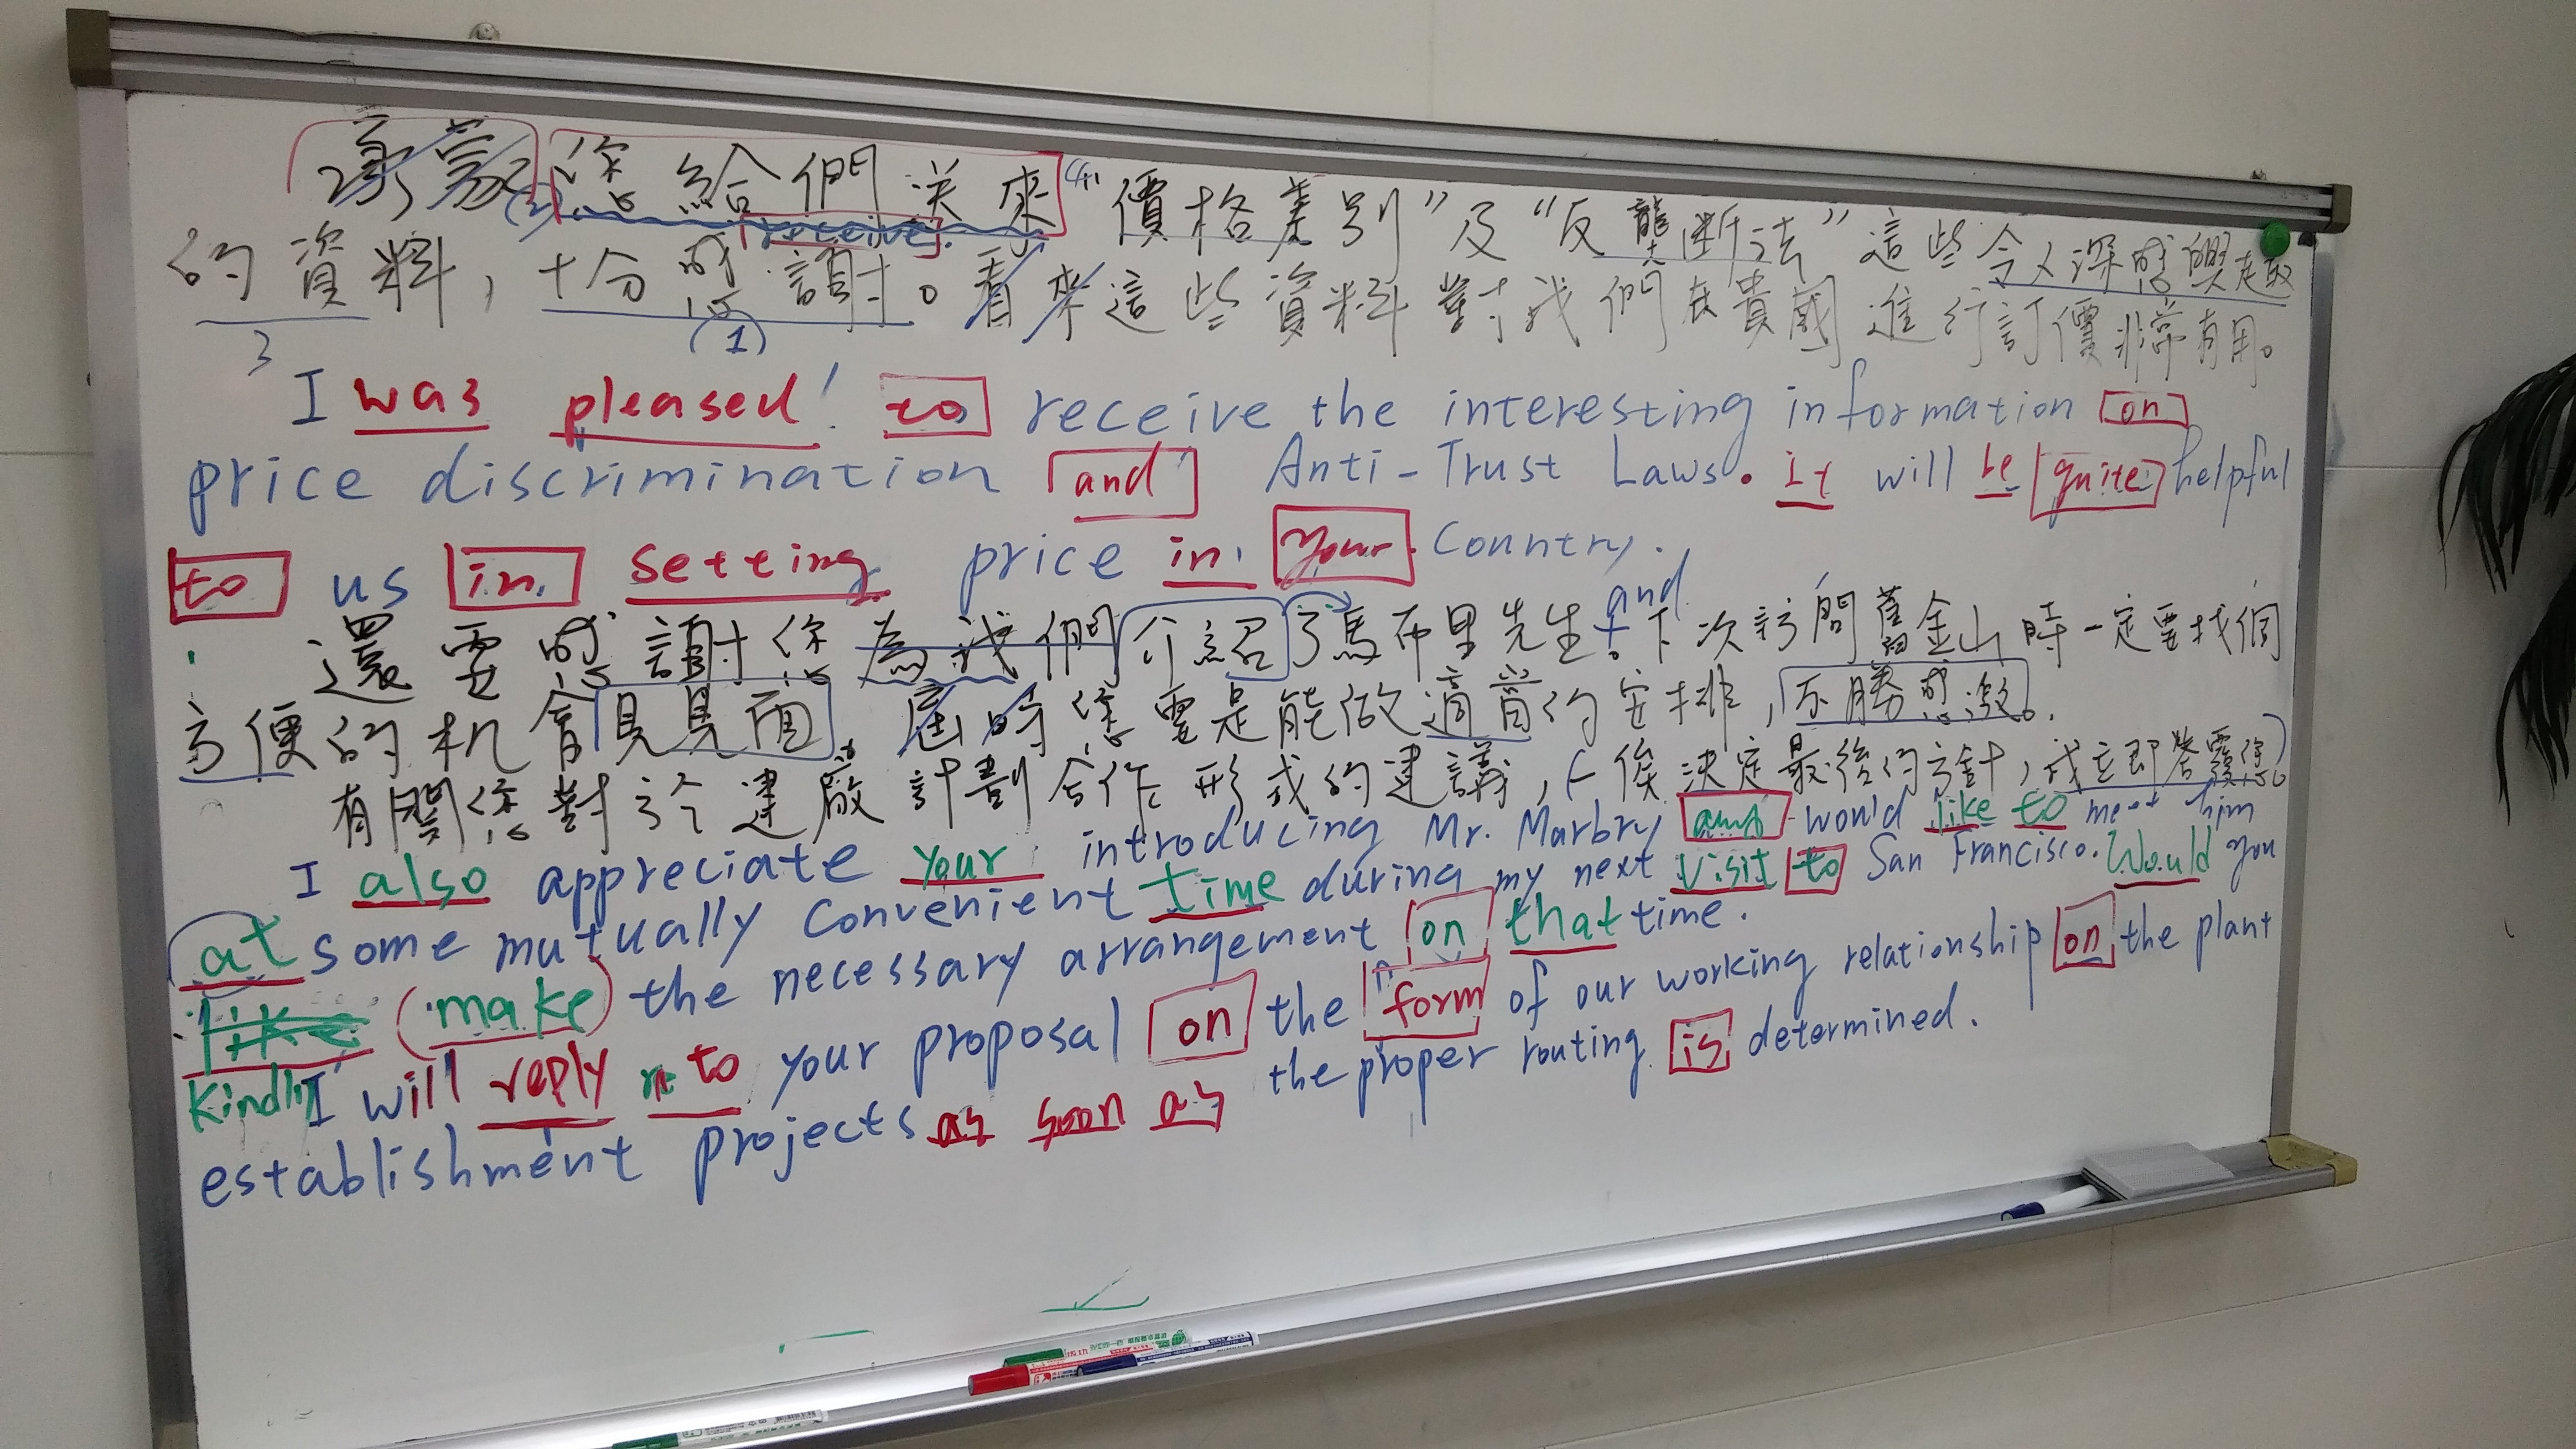 承蒙您給們送來“價格差別”及“反壟斷法”這些令人深感興趣
(2) receive
的資料，十分感謝。看來這些資料對我們在貴國進行訂價非常有用。
3 (1)
I was pleased to receive the interesting information on
price discrimination and Anti-Trust Laws. it will be quite helpful
to us in setting price in your Country.
and
還要感謝您為我們介紹了馬布里先生。下次訪問舊金山時一定要找個
方便的机會見見面，屆時您要是能做適當的安排，不勝感激。
有關您對於建廠計劃合作形式的建議，(一俟決定最後的方針，我立即答覆您)
I also appreciate your introducing Mr. Marbry and would like to meet him
at some mutually convenient time during my next visit to San Francisco. Would you
kindly (make) the necessary arrangement on that time.
I will reply to your proposal on the form of our working relationship on the plant
establishment projects as soon as the proper routing is determined.